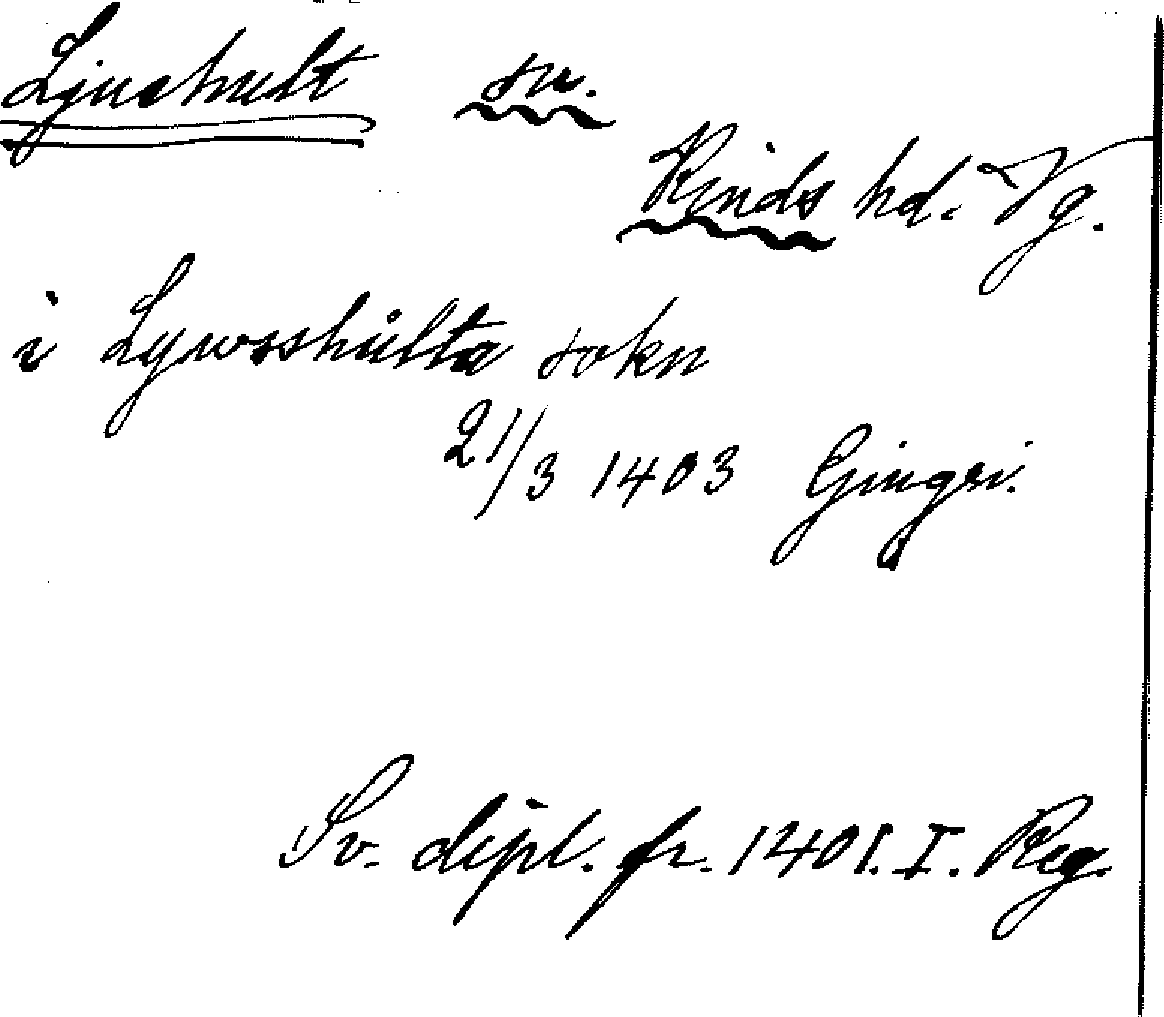 Ljushult sn.
Kinds hd. Vg.
i Lywsshulta sokn
21/3 1403 Gingri.
Sv. dipl. fr. 1401. I. Reg.